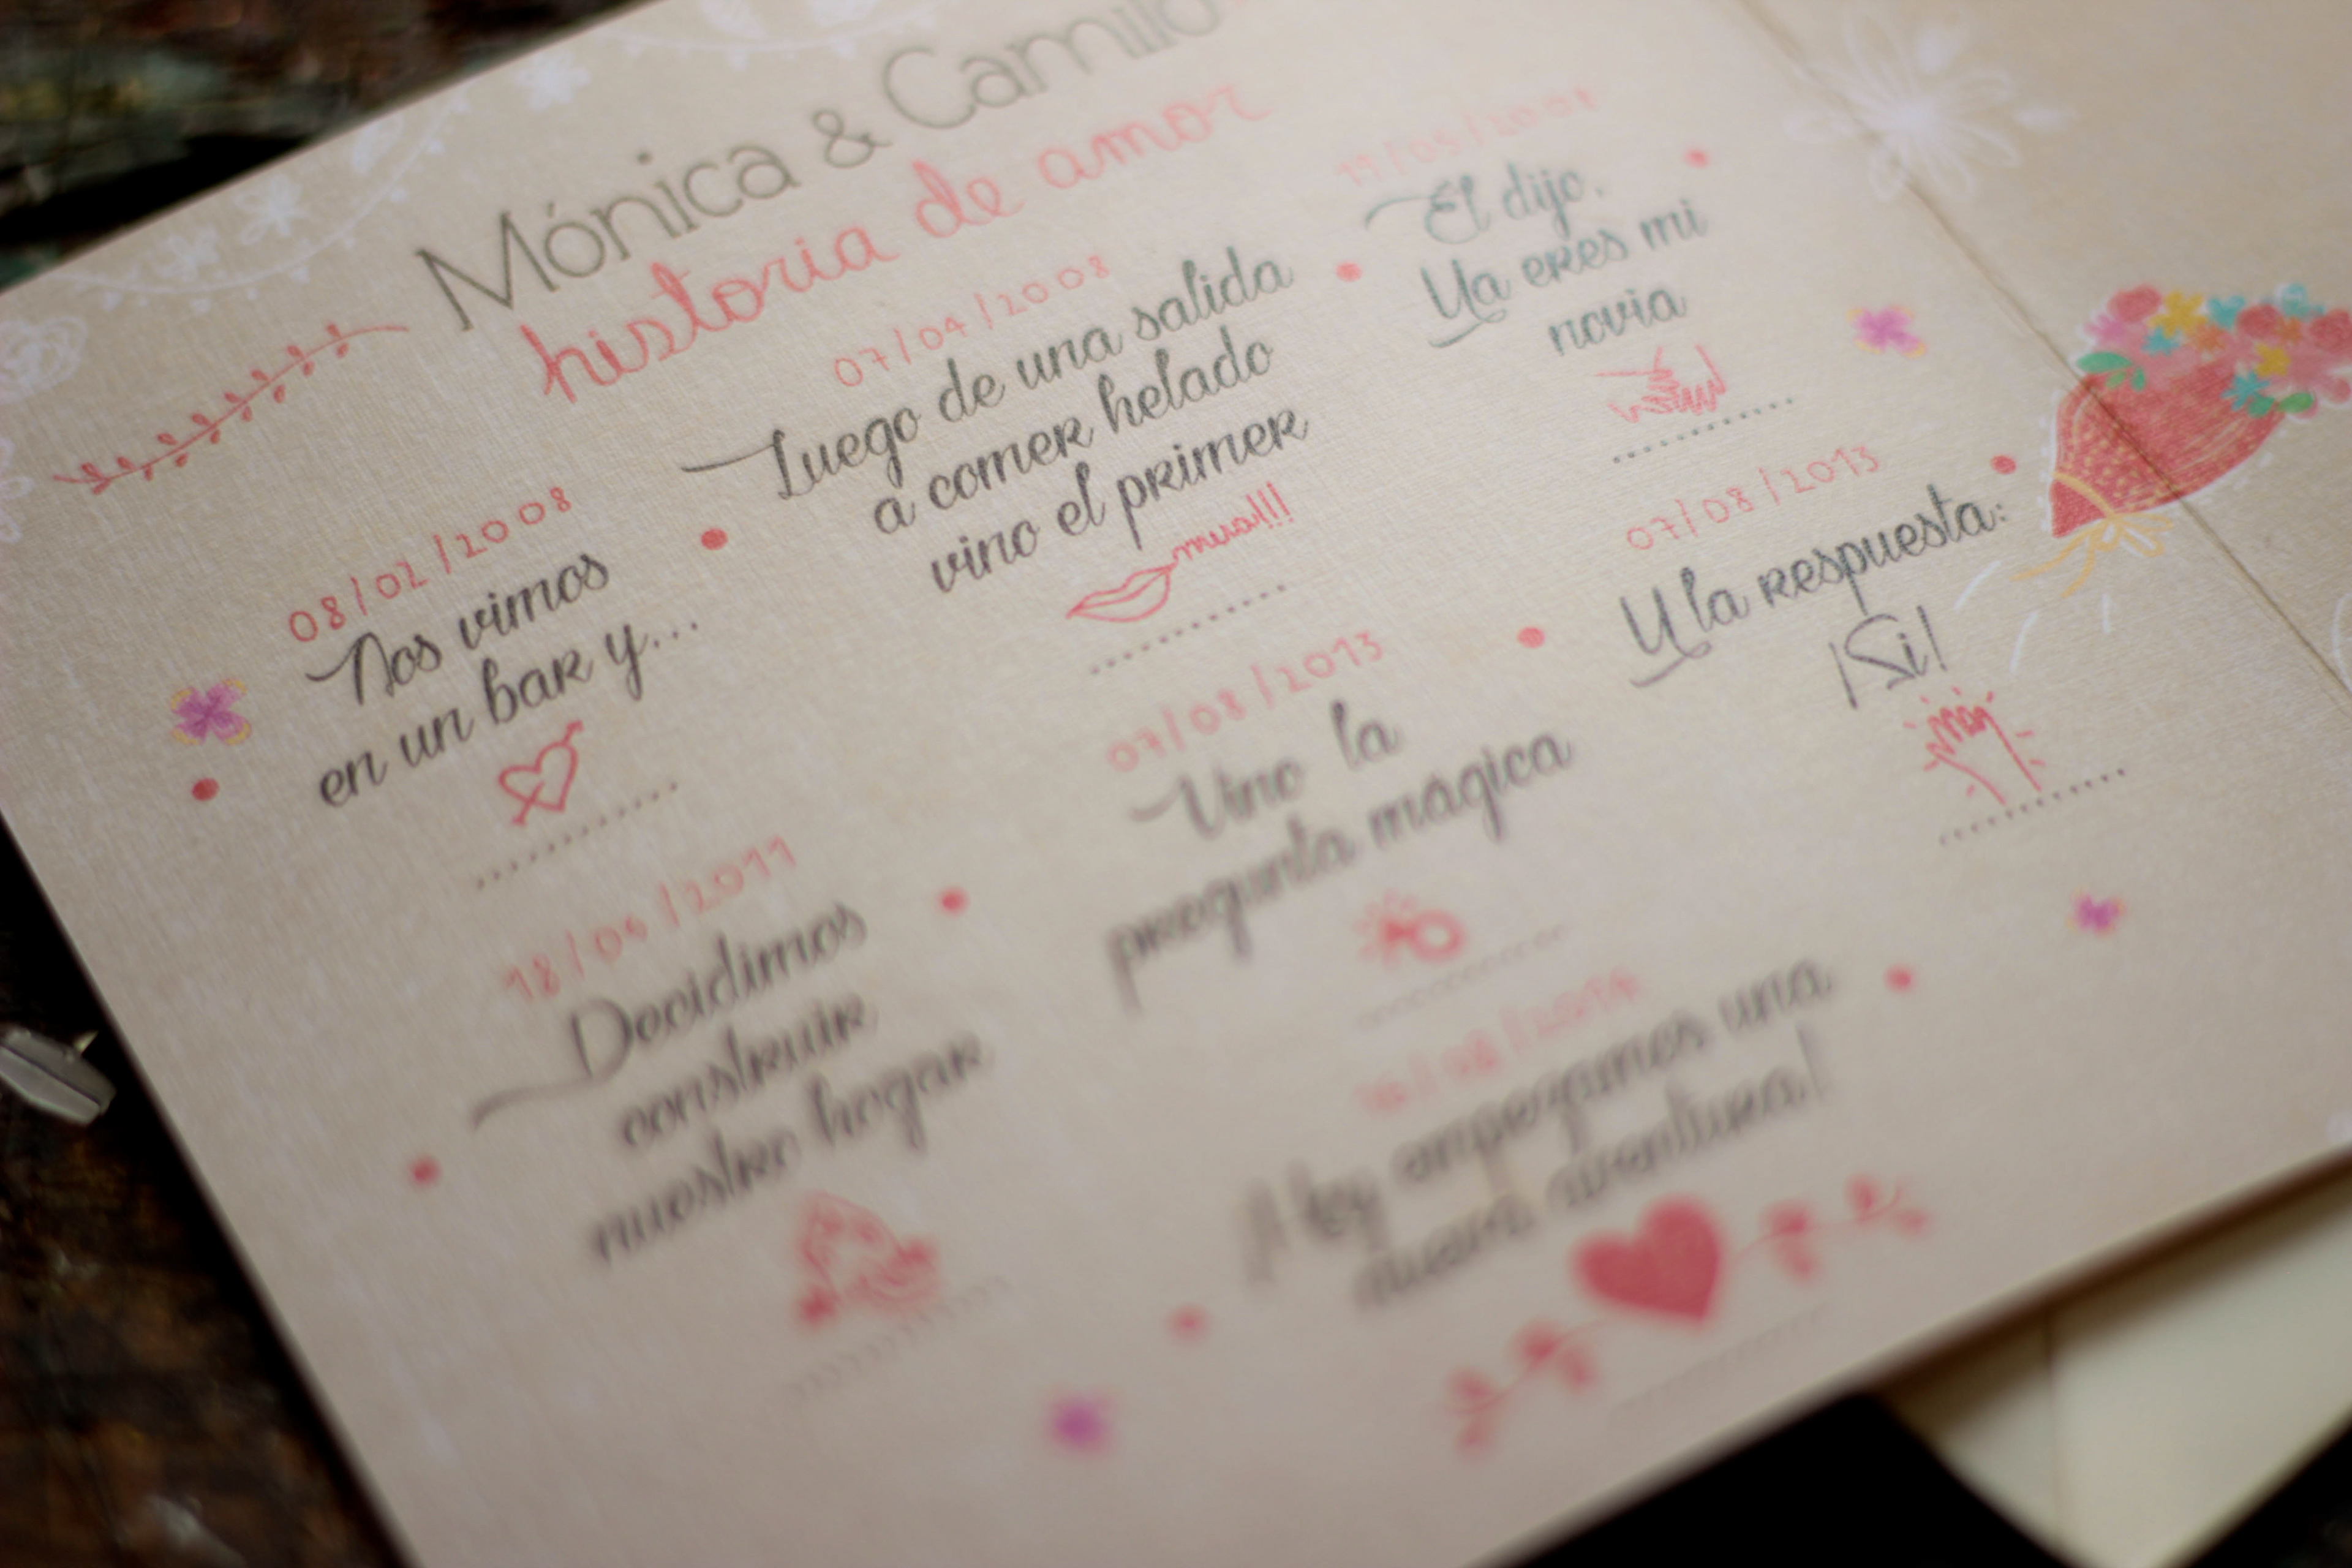 Mónica & Camilo
historia de amor
08/02/2008
Nos vimos
en un bar y...
07/04/2008
Luego de una salida
a comer helado
vino el primer
mua!!!
El dijo,
Ya eres mi
novia
Decidimos
construir
nuestro hogar
07/08/2013
Vino la
pregunta mágica
07/08/2013
Y la respuesta:
¡Si!
¡Hoy empezamos una
nueva aventura!